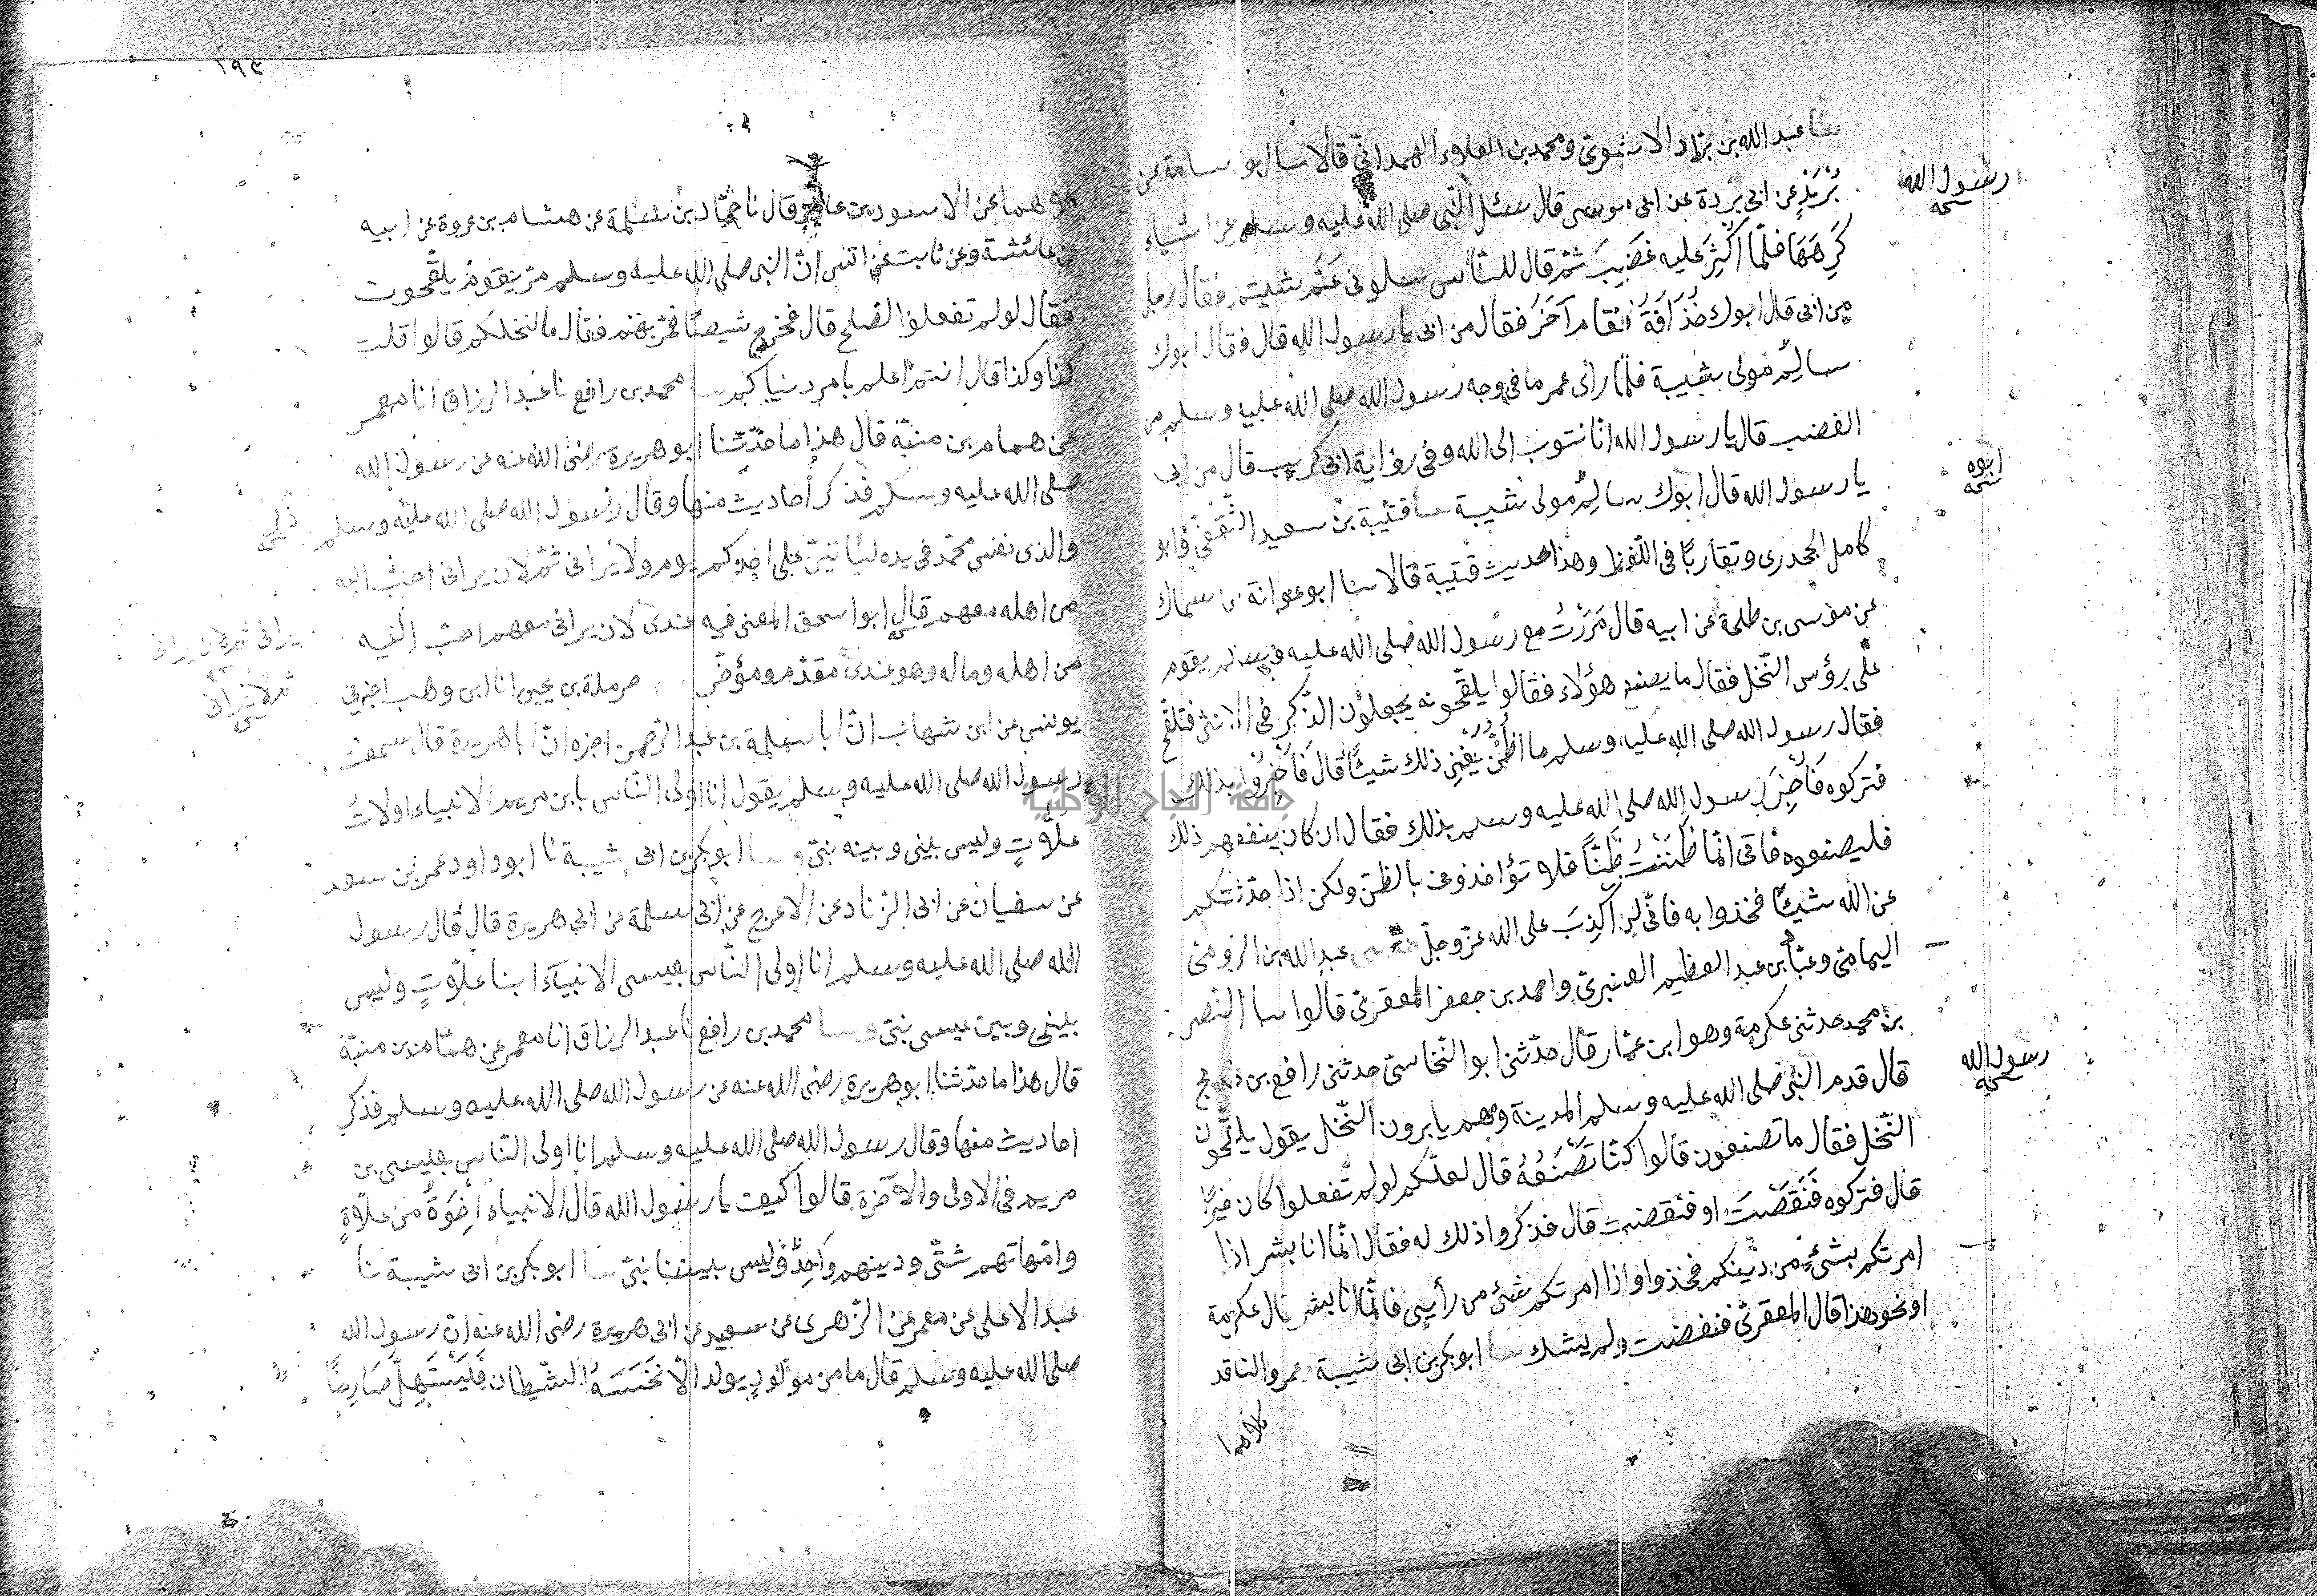 ثنا عبد الله بن براد الاشعرى ومحمد بن العلاء الهمدانى قالا نا ابو سامة عن
بُرَيْدٍ عن ابى بردة عن ابى موسى قال سئل النبى صلى الله عليه وسلم عن اشياء
رسول الله
كَرِهَهَا فلمّا اُكْثِرَ عليه غَضِبَ ثم قال للناس سلونى عَمَّ شيتم فقال رجل
من ابى قال ابوك حُذَافَةُ فقام آخَرُ فقال من ابى يا رسول الله قال فقال ابوك
سالِمٌ مولى شيبة فلمّا رأى عمر ما فى وجه رسول الله صلى الله عليه وسلم من
الغضب قال يا رسول الله انا نتوب الى الله وفى رواية ابى كريب قال من ابى
ابوه
يا رسول الله قال ابوك سالِمٌ مولى شيبة ثنا قتيبة بن سعيد الثقفى وابو
كامل الجحدرى وتقاربًا فى اللّفظ وهذا حديث قتيبة قالا نا ابو عوانة عن سماك
عن موسى بن طلحة عن ابيه قال مَرَرْتُ مع رسول الله صلى الله عليه وسلم بقوم
على رؤس النّخل فقال ما يصنع هؤلاء فقالوا يلقّحونه يجعلون الذّكر فى الانثى فتلقح
فقال رسول الله صلى الله عليه وسلم ما اظُنُّ يُغْنِى ذلك شيئًا قال فَاُخْبِرُوا بذلك
فتركوه فَاُخْبِرَ رسول الله صلى الله عليه وسلم بذلك فقال ان كان ينفعهم ذلك
فليصنعوه فانى انّما ظَنَنْتُ ظَنًّا فلا تؤاخذونى بالظن ولكن اذا حدّثتكم
عن الله شيئًا فخذوا به فانّى لن اكذِبَ على الله عزّ وجلّ حدثنى عبد الله بن الرومى
اليمامى وعبّاس بن عبد العظيم العنبرى واحمد بن جعفر المعقرىّ قالوا نا النّضر
بن محمد حدثنى عكرمة وهو ابن عمّار قال حدّثنى ابو النّجاشىّ حدثنى رافع بن خديج
قال قدم النبى صلى الله عليه وسلم المدينة وهم يابرون النّخل يقول يلقّحون
رسول الله
النّخل فقال ما تصنعون قالوا كنّا نَصْنَعُهُ قال لعلّكم لو لم تفعلوا كان خيرًا
قال فتركوه فَنَفَضَتْ او فنقصت قال فذكروا ذلك له فقال انّما انا بشر اذا
امرتكم بشئٍ من دينكم فخذوا واذا امرتكم بشئ من رأيى فانّما انا بشر قال عكرمة
او نحو هذا قال المعقرىّ فنفضت ولم يشك نا ابو بكر بن ابى شيبة عمرو الناقد
كلاهما
١٩٤
كلاهما عن الاسود بن عامر قال نا حمّاد بن سلمة عن هشام بن عروة عن ابيه
عن عائشة وعن ثابت عن انس انّ النبى صلى الله عليه وسلم مرّ بقوم يلقّحون
فقال لو لم تفعلوا لصلح قال فخرج شيصًا فمرّ بهم فقال ما لنخلكم قالوا قلت
كذا وكذا قال انتم اعلم بامر دنياكم نا محمد بن رافع نا عبد الرزاق انا معمر
عن همام بن منبّه قال هذا ما حدّثنا ابو هريرة رضى الله عنه عن رسول الله
صلى الله عليه وسلم فذكر أحاديث منها وقال رسول الله صلى الله عليه وسلم
والذى نفس محمّد فى يده ليأتينّ على احدكم يوم ولا يرانى ثم لان يرانى احبّ اليه
من اهله معهم قال ابو اسحق المعنى فيه عندى لان يرانى معهم احبّ اليه
يرانى ثم لان يرانى
من اهله وماله وهو عندى مقدّم ومؤخّر حرملة بن يحيى انا ابن وهب اخبرنى
ثم لا يرانى
يونس عن ابن شهاب انّ ابا سلمة بن عبد الرّحمن اخبره انّ ابا هريرة قال سمعت
رسول الله صلى الله عليه وسلم يقول انا اولى النّاس بابن مريم الانبياء اولاتُ
علّاتٍ وليس بينى وبينه نبىّ ونا ابو بكر بن ابى شيبة نا ابو داود عمر بن سعد
عن سفيان عن ابى الزّناد عن الاعرج عن ابى سلمة عن ابى هريرة قال قال رسول
الله صلى الله عليه وسلم انا اولى النّاس بعيسى الانبيآء ابنا علّاتٍ وليس
بينى وبين عيسى نبىّ ونا محمد بن رافع نا عبد الرزاق انا معمر عن همّام بن منبّه
قال هذا ما حدّثنا ابو هريرة رضى الله عنه عن رسول الله صلى الله عليه وسلم فذكر
احاديث منها وقال رسول الله صلى الله عليه وسلم انا اولى النّاس بعيسى بن
مريم فى الاولى والآخرة قالوا كيف يا رسول الله قال الانبياء اخْوَةٌ من علّاتٍ
وامّهاتهم شتّى ودينهم واحِدٌ وليس بيننا نبىّ نا ابو بكر بن ابى شيبة نا
عبد الاعلى عن معمر عن الزّهرى عن سعيد عن ابى هريرة رضى الله عنه انّ رسول الله
صلى الله عليه وسلم قال ما من مولودٍ يولد الّا نَخَسَهُ الشيطان فَيَسْتَهِلُّ صَارِخًا
جامعة النجاح الوطنية